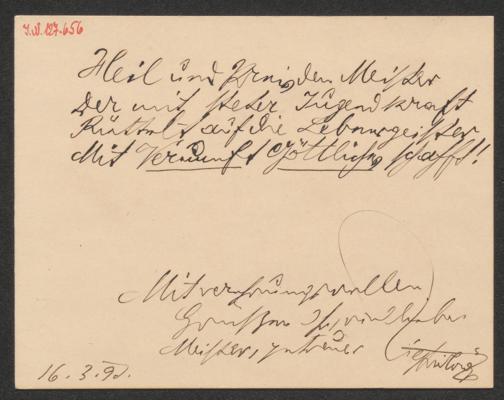 I.N. 127.656
Heil und Preis, dem Meister
Der mit steter Jugendkraft
Rüttelt auf die Lebensgeister
Mit Vernunft Göttliches schafft!
Mit verehrungsvollen
Grüßen Ihr, lieber
Meister, getreuer
16. 3. 9